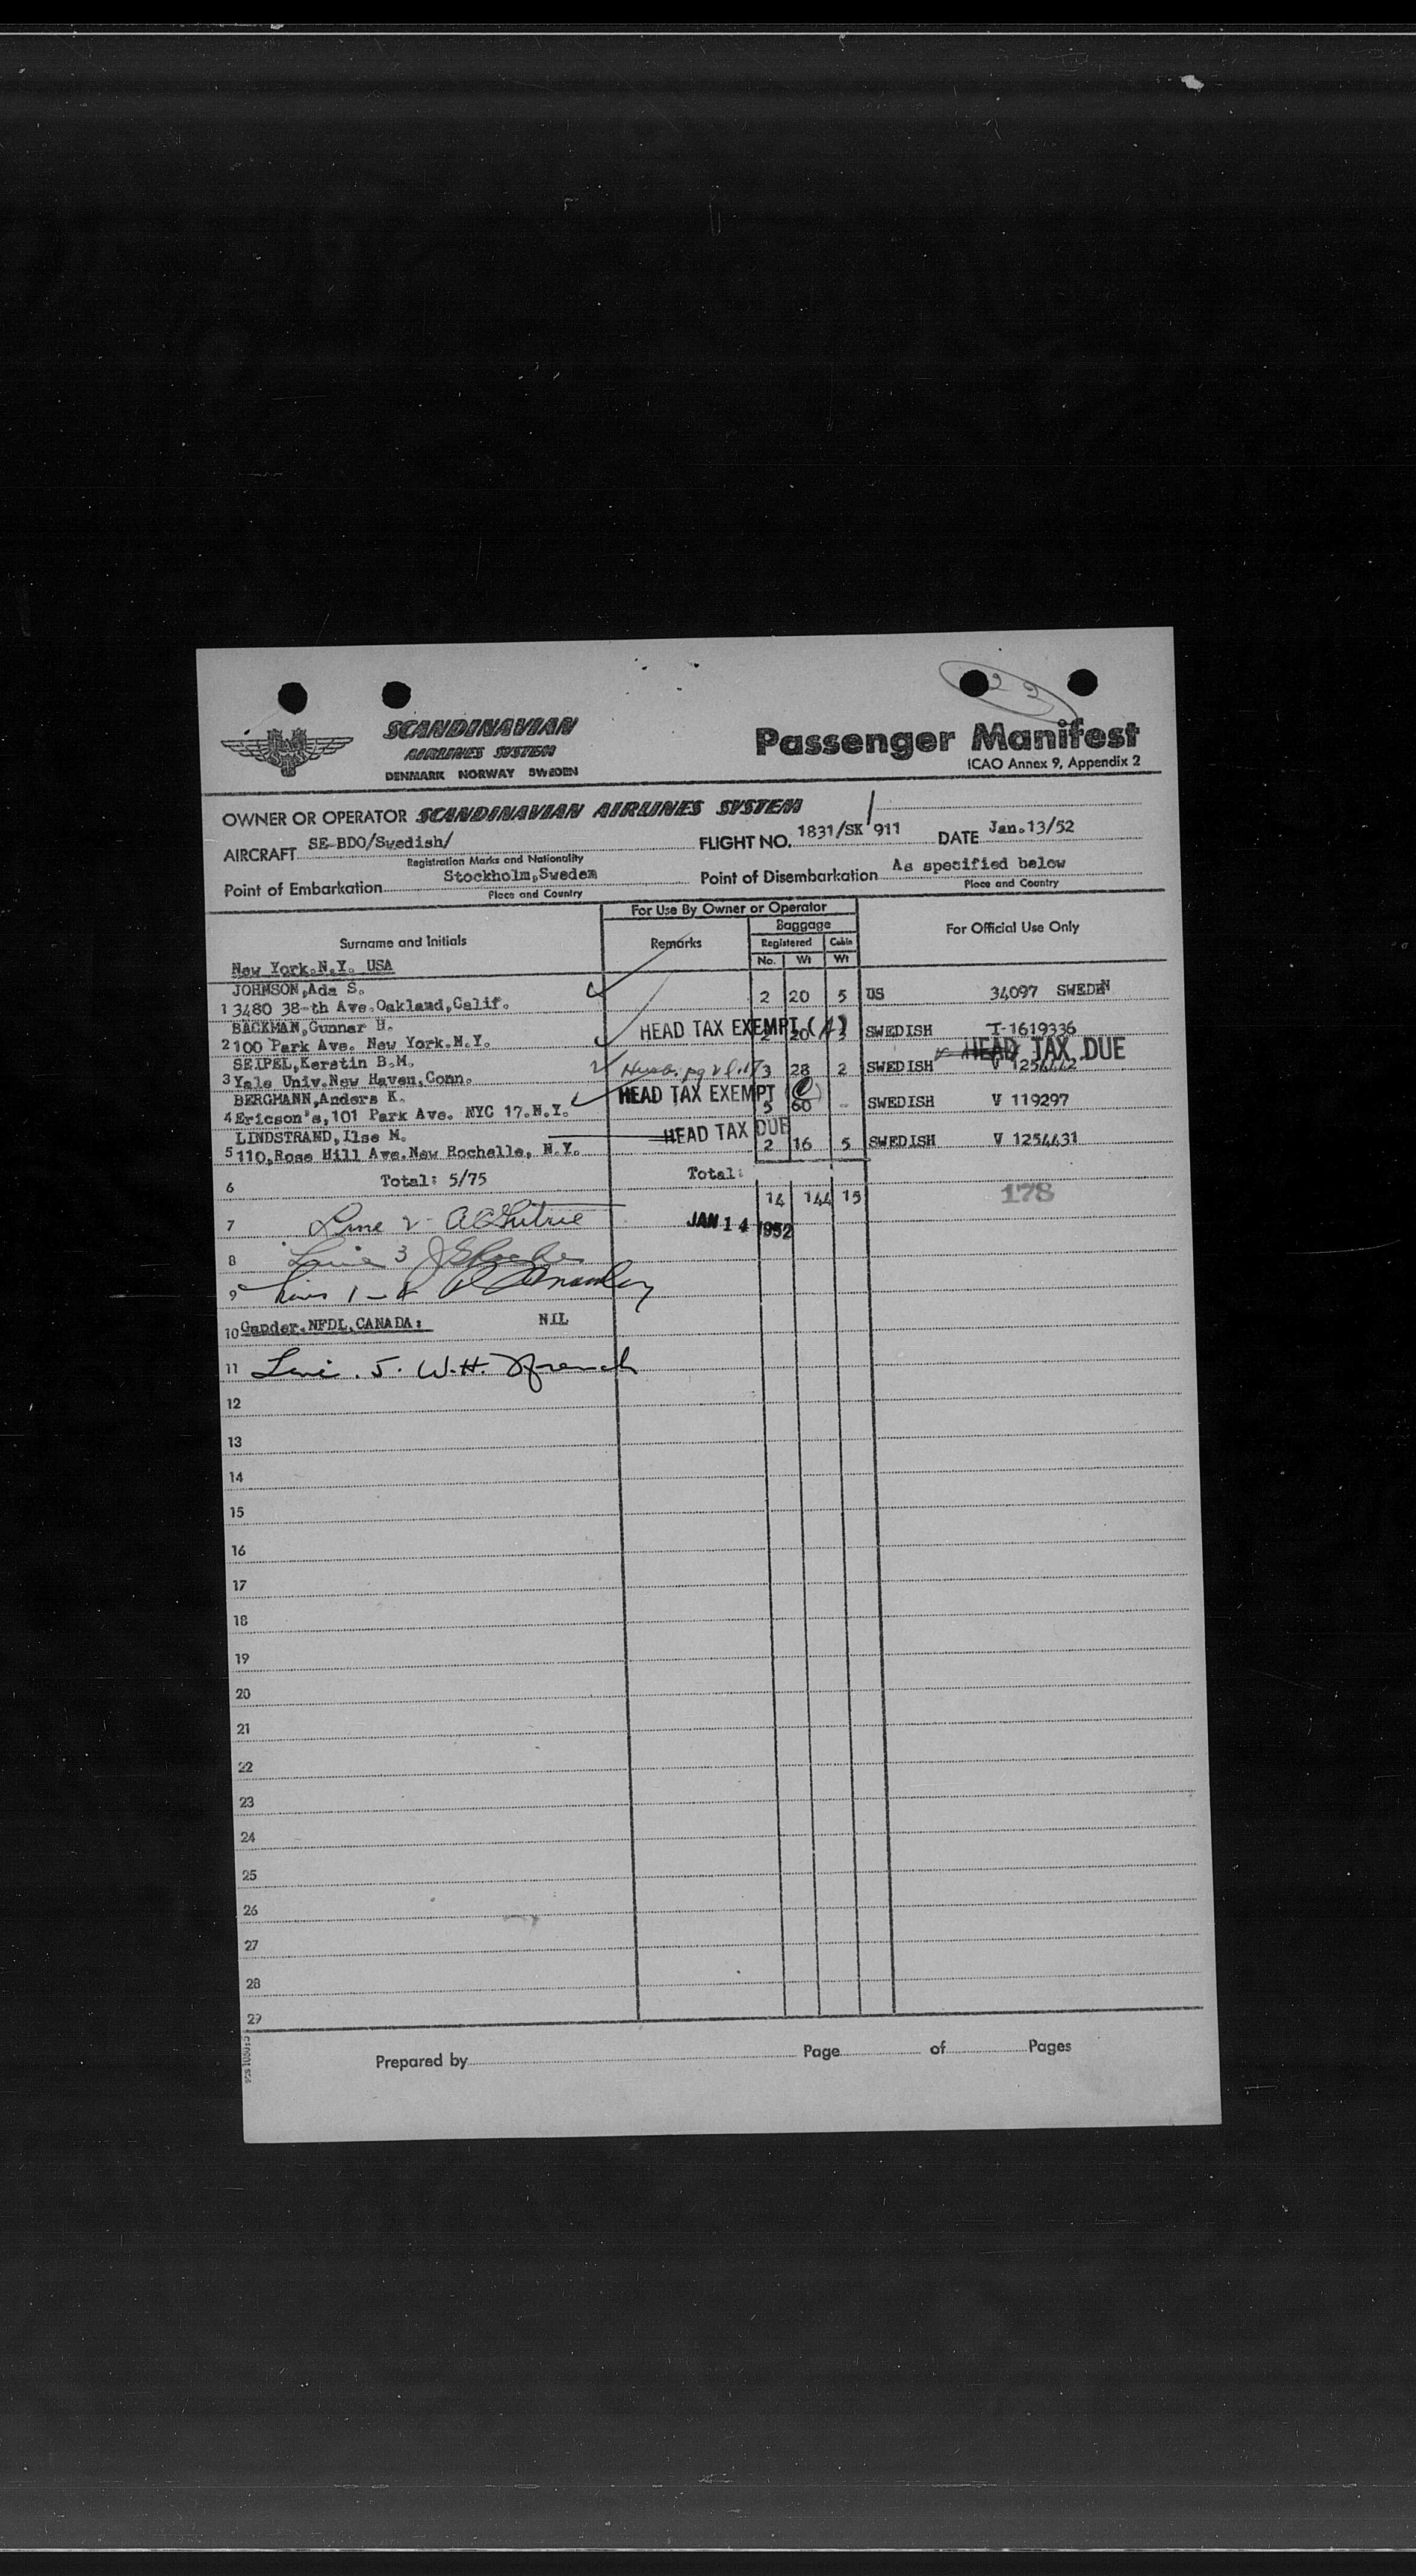 22
SCANDINAVIAN
AIRLINES SYSTEM
DENMARK NORWAY SWEDEN
Passenger Manifest
ICAO Annex 9, Appendix 2
OWNER OR OPERATOR SCANDINAVIAN AIRLINES SYSTEM
AIRCRAFT SE-BDO/Swedish/ FLIGHT NO. 1831/SK 911 DATE Jan.13/52
Registration Marks and Nationality
Point of Embarkation Stockholm,Sweden Point of Disembarkation As specified below
Place and Country Place and Country
For Use By Owner or Operator
Surname and Initials Remarks Baggage For Official Use Only
Registered Cabin
No. Wt Wt
New York.N.Y. USA
JOHNSON,Ada S.
1 3480 38-th Ave.Oakland,Calif. 2 20 5 US 34097 SWEDEN
BACKMAN,Gunnar H.
2 100 Park Ave. New York.N.Y. HEAD TAX EXEMPT 2 20 3 SWEDISH I-1619336
HEAD TAX DUE
SEIPEL,Kerstin B.M.
3 Yale Univ.New Haven,Conn. 3 28 2 SWEDISH V 1254442
BERGMANN,Anders K. HEAD TAX EXEMPT
4 Ericson's,101 Park Ave. NYC 17.N.Y. 5 60 - SWEDISH V 119297
LINDSTRAND,Ilse M. HEAD TAX DUE
5 110,Rose Hill Ave.New Rochelle, N.Y. 2 16 5 SWEDISH V 1254431
6 Total: 5/75 Total: 14 144 15 178
7 Line 2 - JAN 14 1952
8 Line 3
9 Lines 1-4
10 Gander.NFDL.CANADA: NIL
11 Line. 5. W.H. French
12
13
14
15
16
17
18
19
20
21
22
23
24
25
26
27
28
29
Prepared by Page of Pages